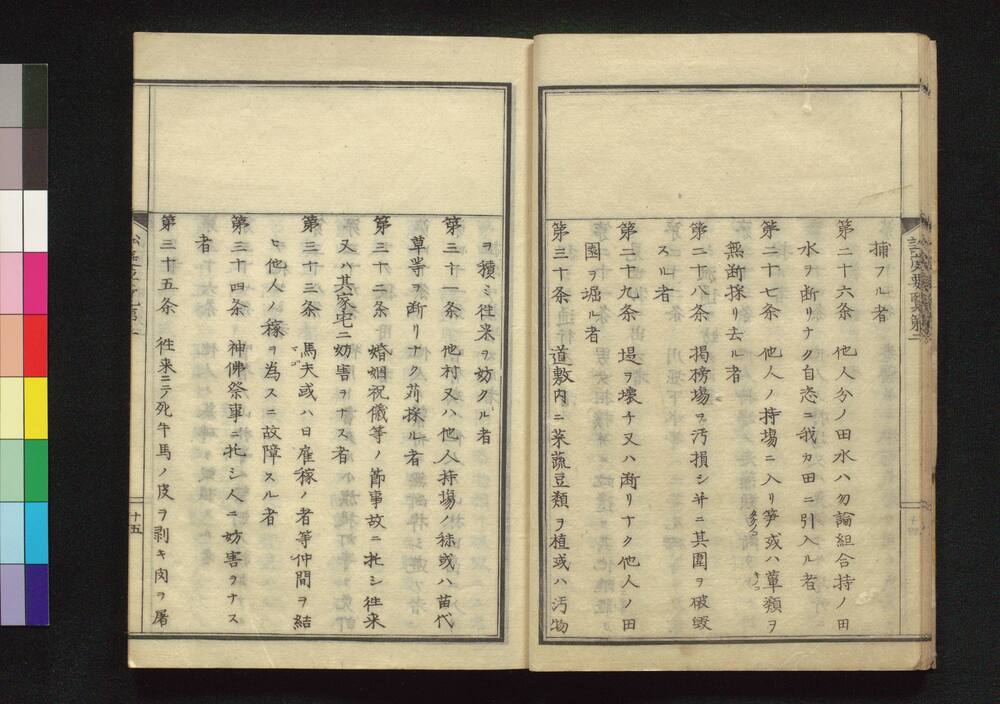 捕フル者
第二十六条 他人分ノ田水ハ勿論組合持ノ田
水ヲ断リナク自恣ニ我カ田ニ引入ル者
第二十七条 他人ノ持場ニ入リ笋或ハ蕈類ヲ
タケノコ キノコ
無断採リ去ル者
第二十八条 掲榜場ヲ汚損シ并ニ其囲ヲ破毀
スル者
第二十九条 堤ヲ壊チ又ハ断リナク他人ノ田
園ヲ堀ル者
第三十条 道敷内ニ菜蔬豆類ヲ植或ハ汚物
ヲ積ミ往来ヲ妨クル者
第三十一条 他村又ハ他人持場ノ秣或ハ苗代
草等ヲ断リナク苅採ル者
第三十二条 婚姻祝儀等ノ節事故ニ托シ往来
又ハ其家宅ニ妨害ヲナス者
第三十三条 馬夫或ハ日雇稼ノ者等仲間ヲ結
マゴ
ヒ他人ノ稼ヲ為スニ故障スル者
第三十四条 神佛祭事ニ托シ人ニ妨害ヲナス
者
第三十五条 往来ニテ死牛馬ノ皮ヲ剥キ肉ヲ屠
十五